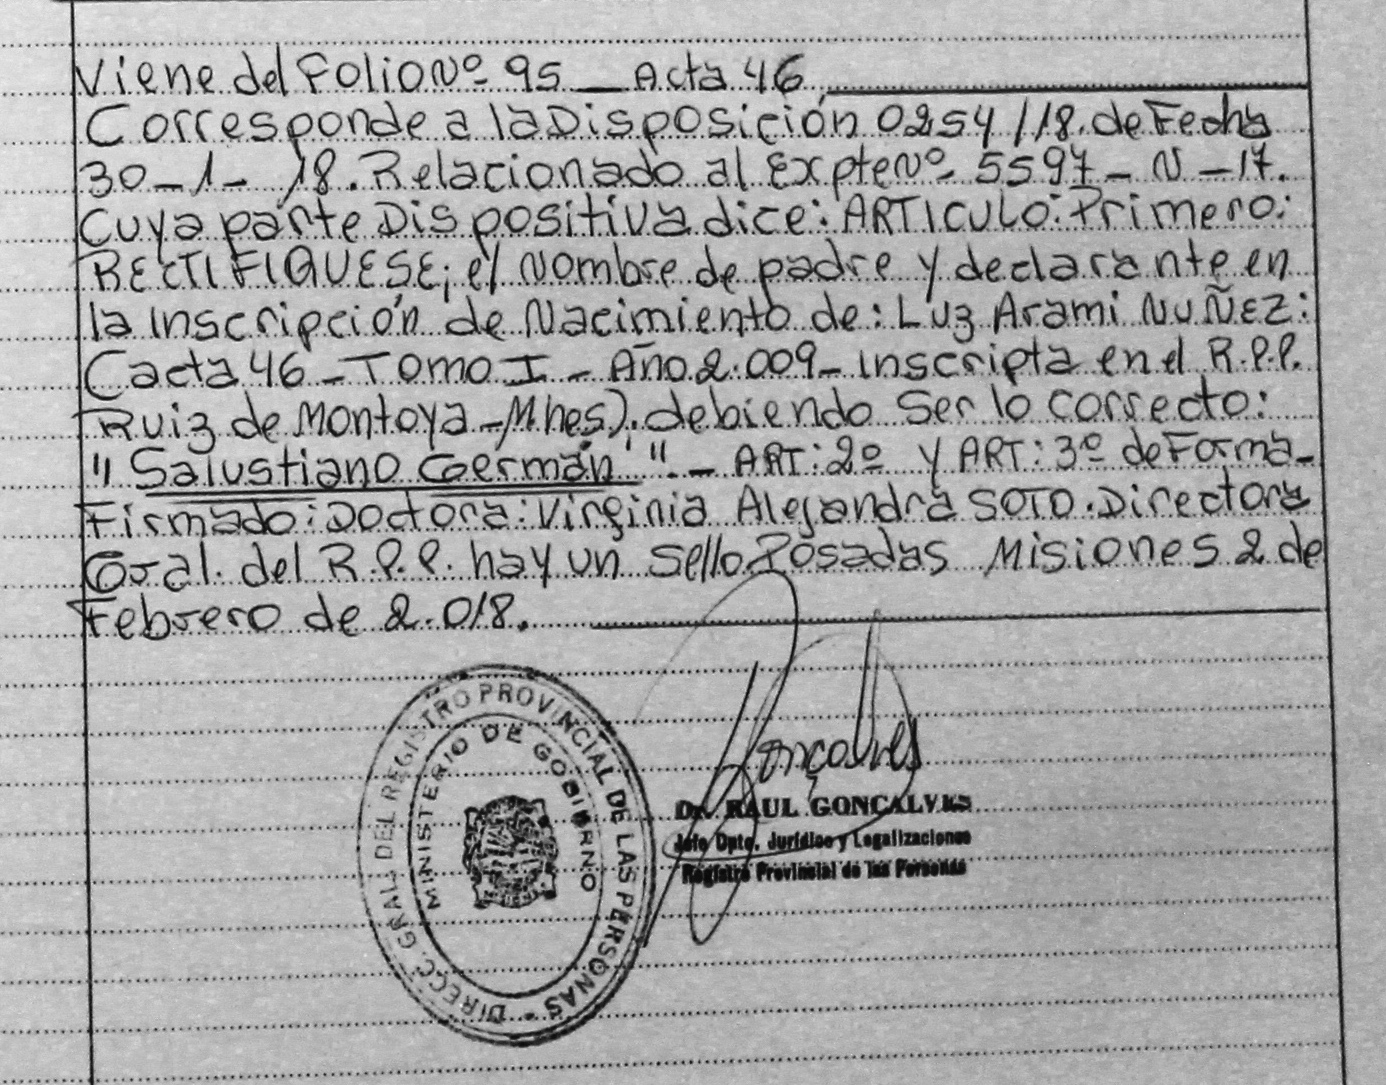 Viene del Folio Nº 95 _ Acta 46
Corresponde a la Disposición 0254/18. de Fecha
30-1-18. Relacionado al Expte Nº 5597-N-17.
Cuya parte Dispositiva dice: ARTICULO: Primero:
RECTIFIQUESE; el Nombre de padre y declarante en
la inscripción de Nacimiento de: Luz Arami NUÑEZ:
(acta 46 - TOMO I - Año 2.009 - inscripta en el R.P.P.
Ruiz de Montoya - Mnes), debiendo ser lo correcto:
"Salustiano Germán". - ART: 2º y ART: 3º de Forma -
Firmado: Doctora: Virginia Alejandra SOTO. Directora
Gral. del R.P.P. hay un sello Posadas Misiones 2 de
Febrero de 2.018.
DIRECC. GRAL. DEL REGISTRO PROVINCIAL DE LAS PERSONAS
MINISTERIO DE GOBIERNO
Gonçalves
Dr. RAUL GONÇALVES
Jefe Dpto. Jurídico y Legalizaciones
Registro Provincial de las Personas